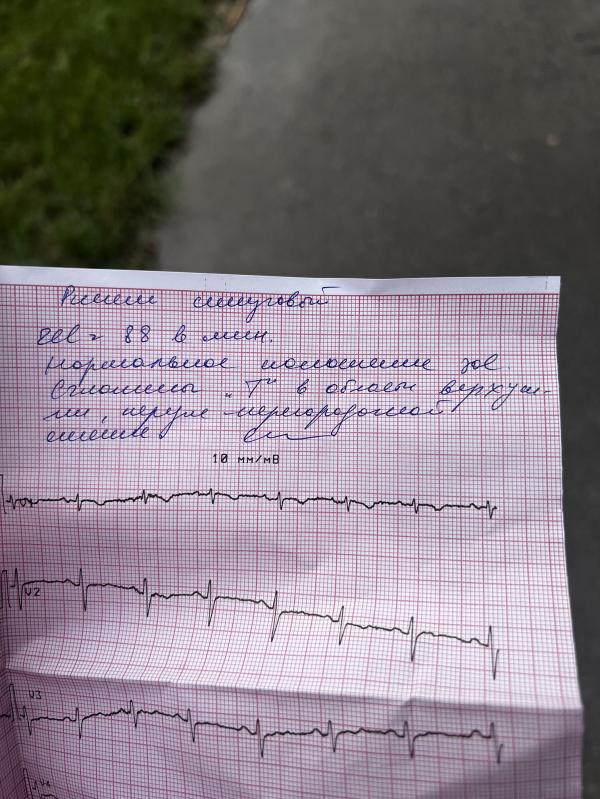 Ритм синусовый
88 в мин.
Нормальное положение ЭОС.
Сглажены "Т" в области верхуш-
ки, перегородочной
стенке
10 мм/мВ
V2
V3
V4